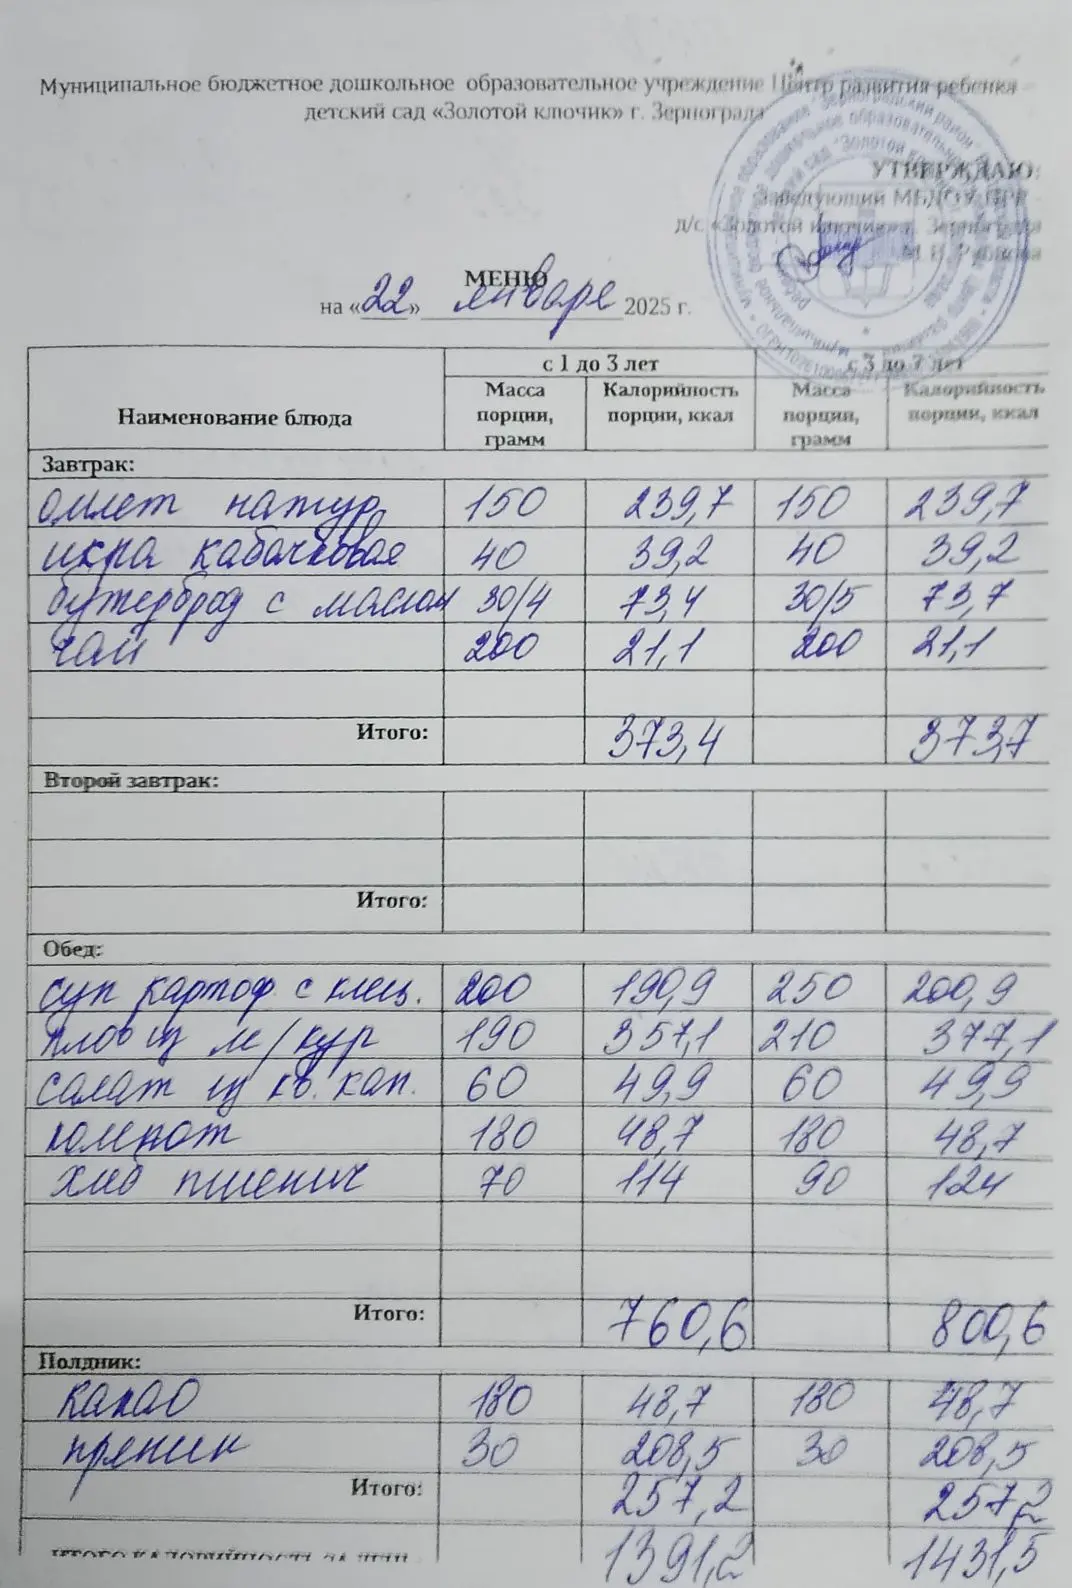 Муниципальное бюджетное дошкольное образовательное учреждение Центр развития ребенка
детский сад «Золотой ключик» г. Зернограда
УТВЕРЖДАЮ:
Заведующий МБДОУ ЦРР
д/с «Золотой ключик» г. Зернограда
МЕНЮ
на «22» января 2025 г.
Наименование блюда с 1 до 3 лет с 3 до 7 лет
Масса порции, грамм Калорийность порции, ккал Масса порции, грамм Калорийность порции, ккал
Завтрак:
омлет натур 150 239,7 150 239,7
икра кабачковая 40 39,2 40 39,2
бутерброд с маслом 30/4 73,4 30/5 73,7
чай 200 21,1 200 21,1
Итого: 373,4 373,7
Второй завтрак:
Итого:
Обед:
суп картоф с клец. 200 190,9 250 200,9
плов из м/кур 190 357,1 210 377,1
салат из кв. кап. 60 49,9 60 49,9
компот 180 48,7 180 48,7
хлеб пшенич 70 114 90 124
Итого: 760,6 800,6
Полдник:
какао 180 48,7 180 48,7
пряник 30 208,5 30 208,5
Итого: 257,2 257,2
ИТОГО КАЛОРИЙНОСТЬ ЗА ДЕНЬ 1391,2 1431,5